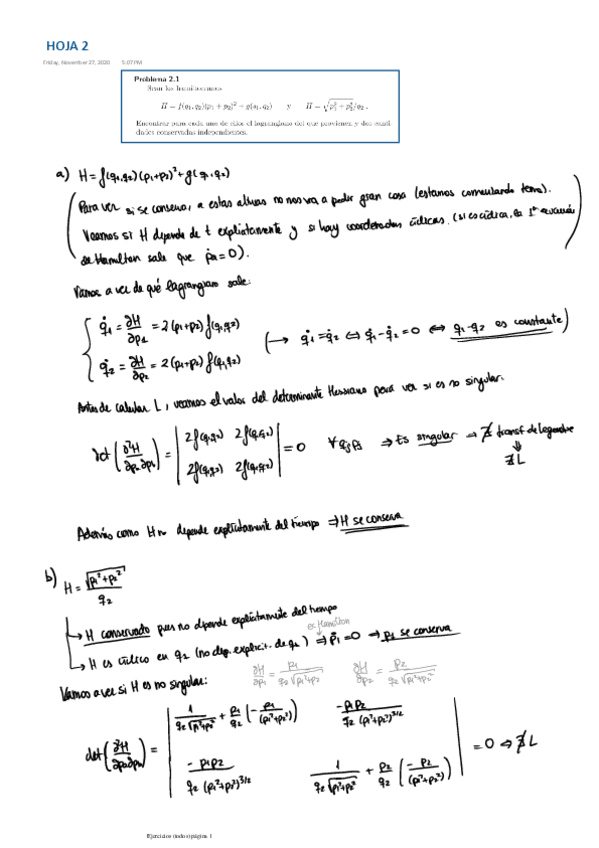 HOJA 2
Friday, November 27, 2020 5:07 PM
Problema 2.1
Sean los hamiltonianos
H = f(q₁,q₂)(p₁ + p₂)² + g(q₁,q₂) y H = √(p₁² + p₂²)/q₂ .
Encontrar para cada uno de ellos el lagrangiano del que provienen y dos canti-
dades conservadas independientes.
a) H = f(q₁,q₂)(p₁+p₂)² + g(q₁,q₂)
(Para ver si se conserva, a estas alturas no nos va a pedir gran cosa (estamos comenzando tema).
Veamos si H depende de t explícitamente y si hay coordenadas cíclicas. (si es cíclica, la 1ª ecuación
de Hamilton sale que ṗ = 0).
Vamos a ver de qué lagrangiano sale:
{ q̇₁ = ∂H/∂p₁ = 2(p₁+p₂) f(q₁,q₂) (→ q̇₁ = q̇₂ ⇔ q̇₁ - q̇₂ = 0 ⇔ q₁-q₂ es constante)
q̇₂ = ∂H/∂p₂ = 2(p₁+p₂) f(q₁,q₂)
Antes de calcular L, veamos el valor del determinante Hessiano para ver si es no singular.
det(∂²H/∂p∂p) = |2f(q₁,q₂) 2f(q₁,q₂)| = 0 ∀ q, p ⇒ Es singular ⇒ ∄ transf. de Legendre
|2f(q₁,q₂) 2f(q₁,q₂)| ⇓ ∄ L
Además como H no depende explícitamente del tiempo ⇒ H se conserva
b) H = √(p₁²+p₂²)/q₂
→ H conservado pues no depende explícitamente del tiempo
ec Hamilton
→ H es cíclico en q₂ (no dep. explícit. de q₁) ⇒ ṗ₁ = 0 ⇒ p₁ se conserva
∂H/∂p₁ = p₁/(q₂√(p₁²+p₂²)) ∂H/∂p₂ = p₂/(q₂√(p₁²+p₂²))
Vamos a ver si H es no singular:
det(∂²H/∂p∂p) = |1/(q₂√(p₁²+p₂²)) + p₁/q₂ (-p₁/(p₁²+p₂²)) -p₁p₂/(q₂(p₁²+p₂²)^3/2)|
|-p₁p₂/(q₂(p₁²+p₂²)^3/2) 1/(q₂√(p₁²+p₂²)) + p₂/q₂ (-p₂/(p₁²+p₂²))| = 0 ⇒ ∄ L
Ejercicios (todos) página 1